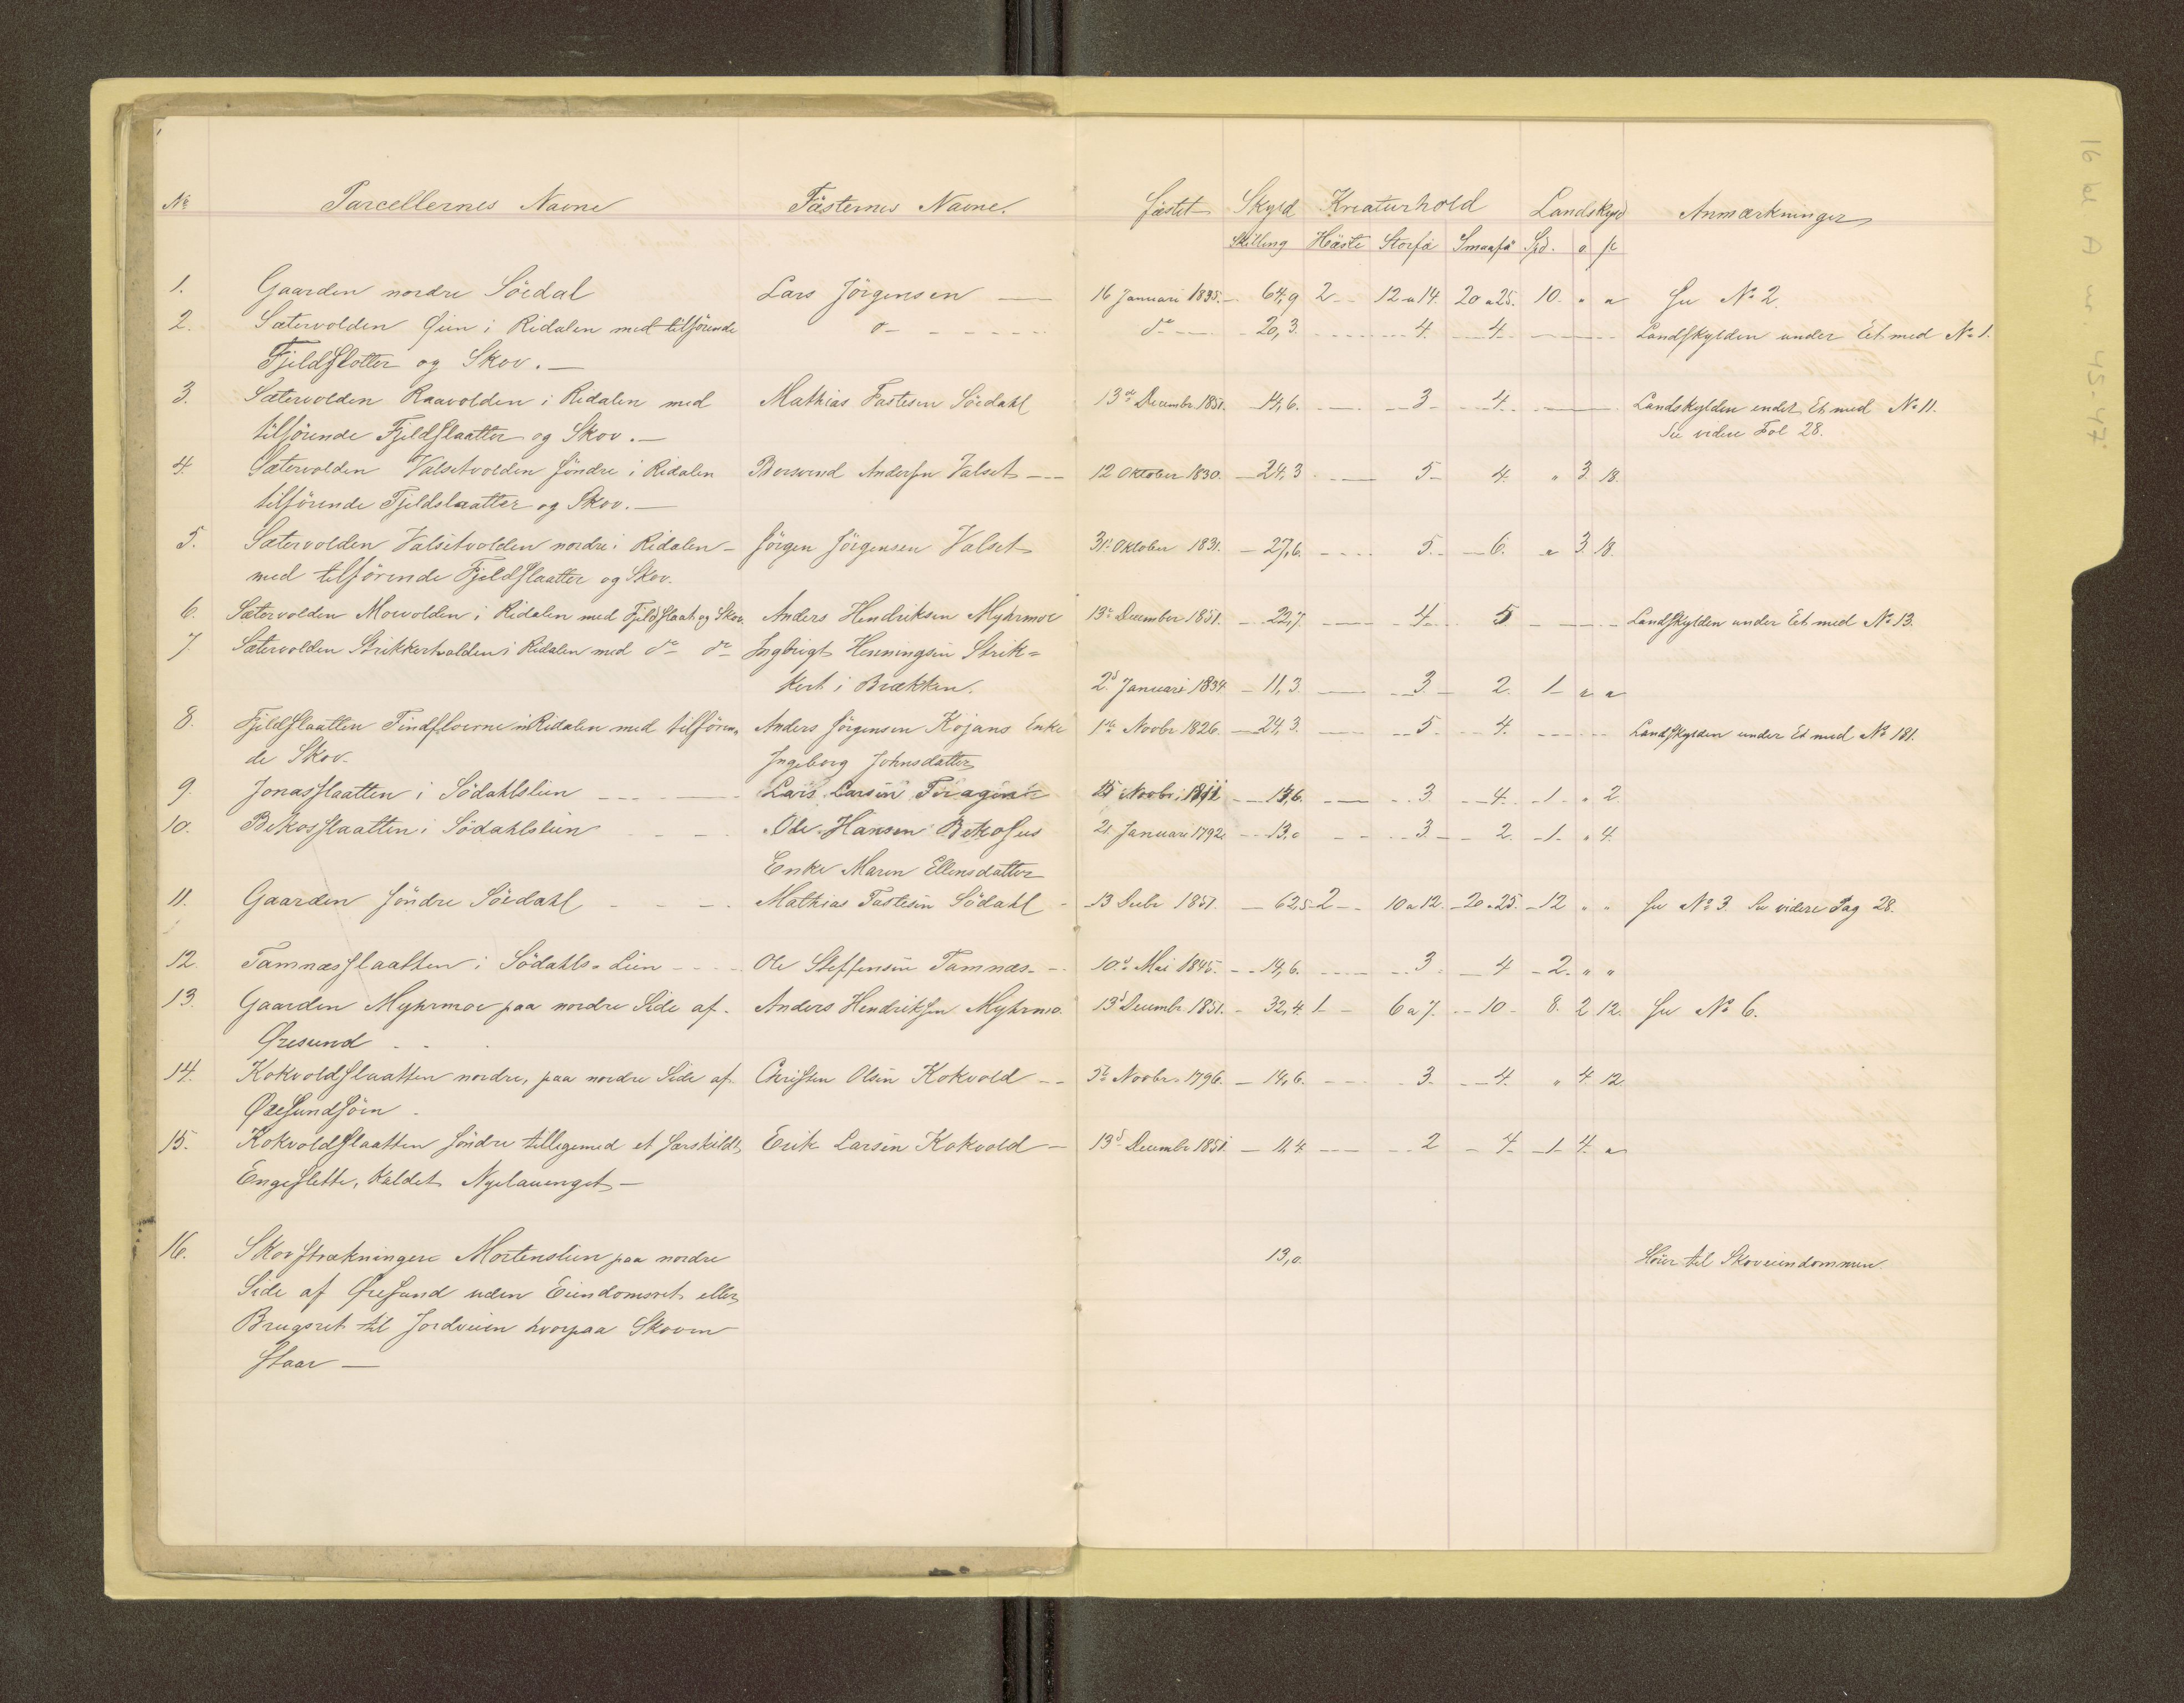 № Parcellernes Navne Fästernes Navne. fæstet Skyld Kreaturhold Landskyld Anmærkninger
Skilling Häste Storfä Smaafä Spd. o ſc
1. Gaarden nordre Söedal Lars Jörgensen — 16 Januari 1835. 64,9 2 12 a 14. 20 a 25. 10. " " Se No 2.
2. Sætervolden Qvin i Ridalen med tilförende do do 20,3. 4. 4. Landskylden under Et med No 1.
Fjeldslotter og Skov. —
3. Sætervolden Raavolden i Ridalen med Mathias Fastesen Söedahl 13de Decembr 1851. 14,6. 3 4. Landskylden under Et med No 11.
tilförende Fjeldslaatter og Skov. — See videre Fol 28.
4 Sætervolden Valsetvolden söndre i Ridalen Bersvend Andersen Valset 12 Oktober 1830. 24,3 5 4. " 3 18.
tilförende Fjeldslaatter og Skov. —
5. Sætervolden Valsetvolden nordre i Ridalen Jörgen Jörgensen Valset 31. Oktober 1831. 27,6. 5. 6. " 3 18.
med tilförende Fjeldslaatter og Skov.
6. Sætervolden Moevolden i Ridalen med Fjeldslaat og Skov. Anders Hendriksen Myhrmoe 13de December 1851. 22,7. 4. 5 Landskylden under Et med No 13.
7. Sætervolden Strikkertvolden i Ridalen med do do Ingbrigt Henningsen Strik=
kert i Brækken. 2d Januari 1834 11,3. 3. 2. 1 " "
8. Fjeldslaatten Tindfloerne i Ridalen med tilfören= Anders Jörgensen Kojans Enke 1te Novbr 1826. 24,3. 5 4. Landskylden under Et med No 181.
de Skov. Ingeborg Johnsdatter
9. Jonasslaatten i Södahlslien Lars Larsen 3. 4. 1. " 2.
10. Bekosslaatten i Södahlslien Ole Hansen Bekosus 21 Januari 1792. 13.0 3. 2. 1. " 4.
Enke Maren Ellensdatter
11. Gaarden söndre Söedahl Mathias Fastesen Södahl 13 Decbr 1851. 62.5 2 10 a 12. 20 a 25. 12 " " Se No 3. Se videre Pag 28.
12. Tamnæsslaatten i Södahls=Lien Ole Steffensen Tamnæs. 10d. Mai 1845. 14,6. 3 4 2. " "
13. Gaarden Myhrmoe paa nordre Side af Anders Hendriksen Myhrmo. 13d Decembr 1851. 32,4. 1 6 a 7. 10 8. 2 12. Se No 6.
Øresund
14. Kokvoldslaatten nordre, paa nordre Side af Christen Olsen Kokvold Novbr 1796. 14,6. 3. 4. " 4 12
Øresundsöen
15. Kokvoldslaatten söndre tilligemed et særskildt Erik Larsen Kokvold 13d Decembr 1851 11,4 2 4. 1 4. "
Engeslette, kaldet Nyelauenget —
16. Skovstrækningere Mortenslien paa nordre 13,0. Hörer til Skoveiendommen.
Side af Øresund uden Eiendomsret eller
Brugsret til Jordveien hvorpaa Skoven
staar —
16 d A nr. 45-47